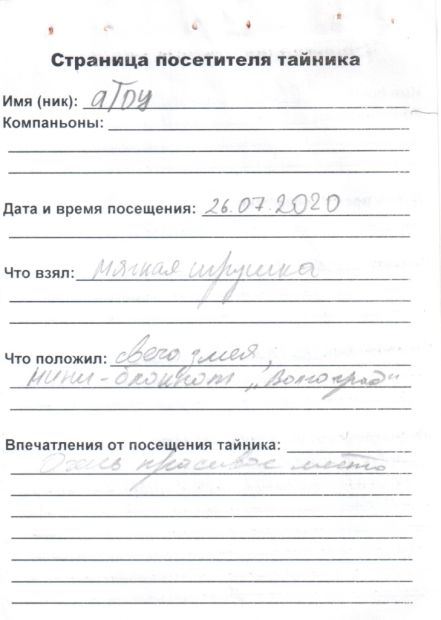 Страница посетителя тайника
Имя (ник): аТоц
Компаньоны:
Дата и время посещения: 26.07.2020
Что взял: мягкая игрушка
Что положил: змея,
мини-блокнот „Волгоград"
Впечатления от посещения тайника:
Очень красивое место